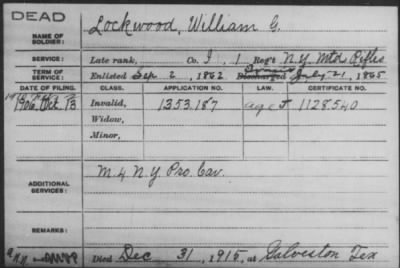 DEAD
NAME OF SOLDIER: Lockwood, William G.
SERVICE: Late rank, Co. I, 1 Reg't N.Y. Mtd Rifles
TERM OF SERVICE: Enlisted Sep 2, 1862 Discharged July 21, 1865
DATE OF FILING. CLASS. APPLICATION NO. LAW. CERTIFICATE NO.
1906 Oct 13 Invalid, 1353187 1128.540
Widow,
Minor,
ADDITIONAL SERVICES: M 4 N Y Pro. Cav.
REMARKS:
Died Dec 31, 1915, at Galveston Tex